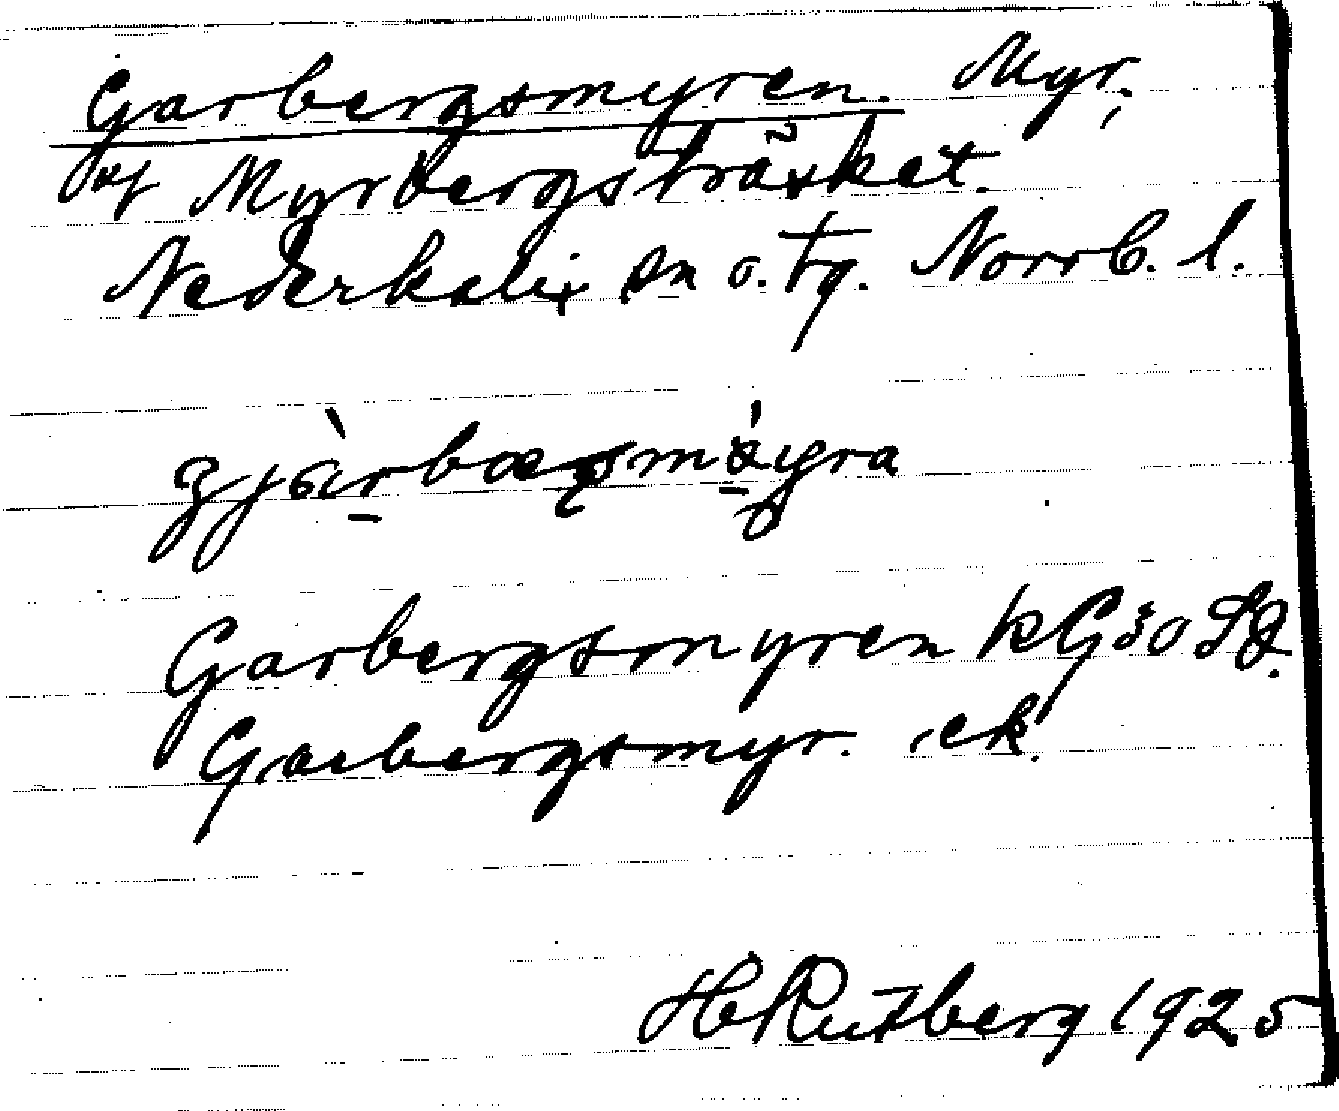 Garbergsmyren. Myr,
of Myrbergsträsket.
Nederkalix sn o. tg. Norrb. l.
Garbergsmyren kG30
Garbergsmyr. ek.
H Rutberg 1925